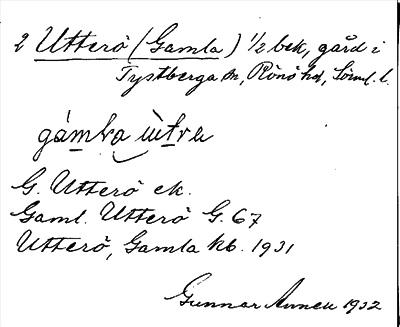 2 Utterö (Gamla) 1/2 bek, gård i
Tystberga sn, Rönö hd, Sörml. l.
gámla ùtra
G. Utterö ek.
Gaml. Utterö G. 67
Utterö, Gamla kb. 1931
Gunnar 1932